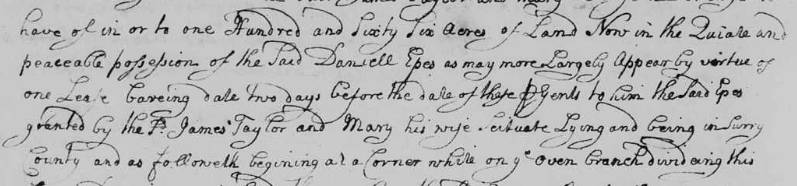 have of in or to one Hundred and Sixty Six Acres of Land Now in the Quiate and
peaceable possession of the Said Daniell Epes as may more Largely Appear by virtue of
one Lease bareing date two days before the date of these Psents to him the Said Epes
granted by the Sd. James Taylor and Mary his wife Scituate Lying and being in Surry
County and as followeth begining at a Corner white on ye Oven branch divideing this